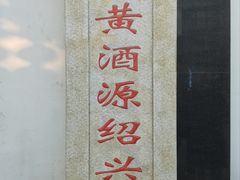 黄酒源绍兴